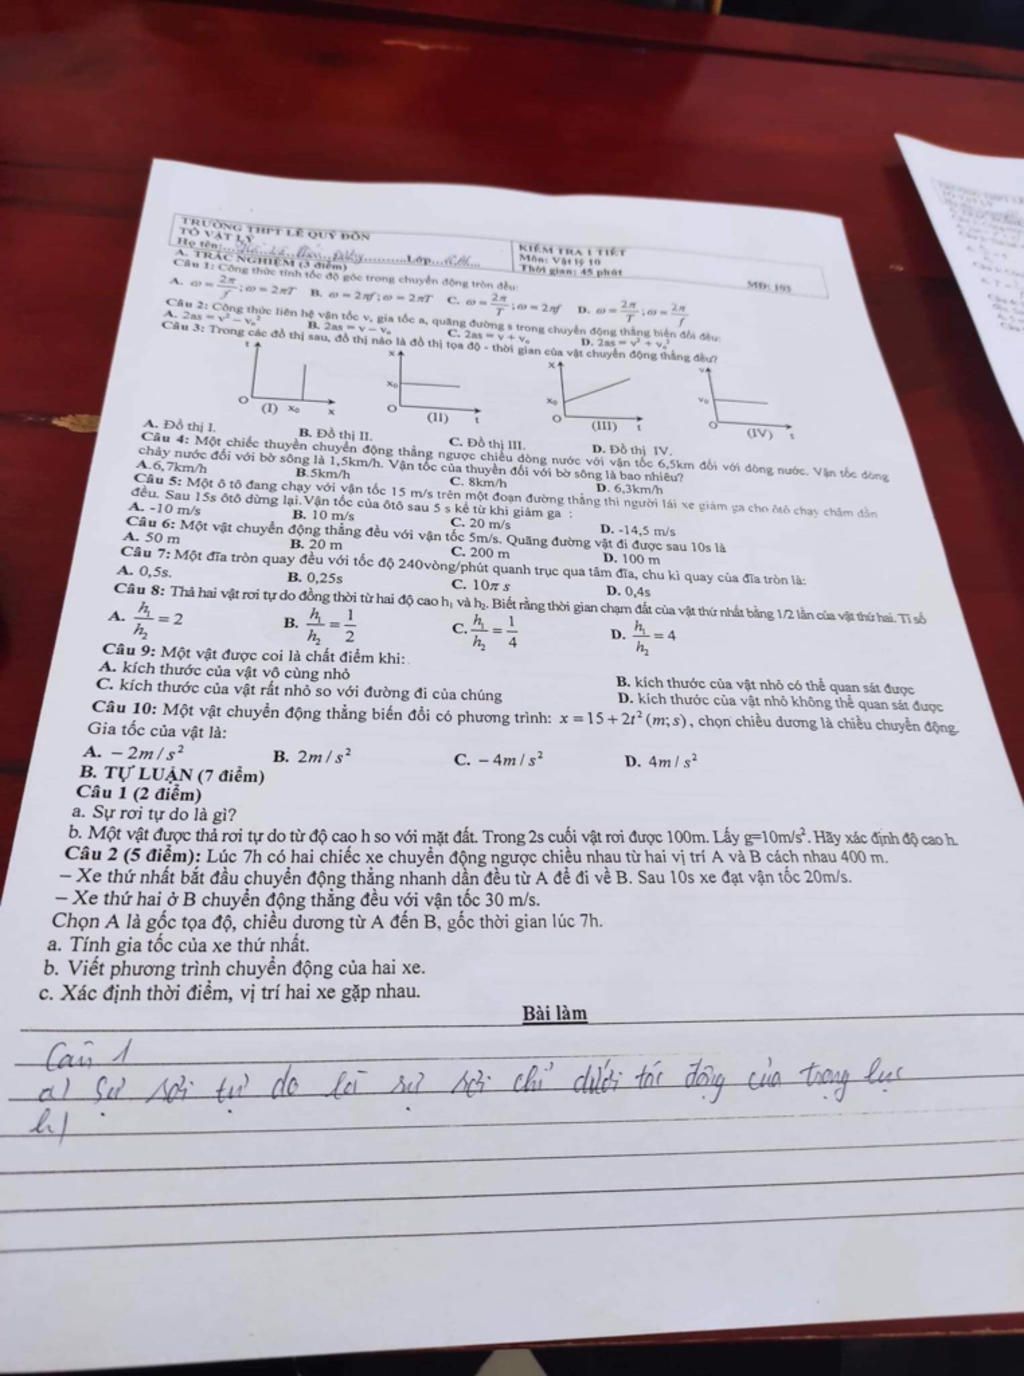 TRƯỜNG THPT LÊ QUÝ ĐÔN
TỔ VẬT LÝ
Họ tên: Lớp
KIỂM TRA 1 TIẾT
Môn: Vật lý 10
Thời gian: 45 phút
MĐ: 103
A. TRẮC NGHIỆM (3 điểm)
Câu 1: Công thức tính tốc độ góc trong chuyển động tròn đều:
A. ω = 2π/f ; ω = 2πT B. ω = 2πf ; ω = 2πT C. ω = 2π/T ; ω = 2πf D. ω = 2π/T ; ω = 2π/f
Câu 2: Công thức liên hệ vận tốc v, gia tốc a, quãng đường s trong chuyển động thẳng biến đổi đều:
A. 2as = v² − v₀² B. 2as = v − v₀ C. 2as = v + v₀ D. 2as = v² + v₀²
Câu 3: Trong các đồ thị sau, đồ thị nào là đồ thị tọa độ - thời gian của vật chuyển động thẳng đều?
t O (I) x₀ x
x x₀ O (II) t
x x₀ O (III) t
v v₀ O (IV) t
A. Đồ thị I. B. Đồ thị II. C. Đồ thị III. D. Đồ thị IV.
Câu 4: Một chiếc thuyền chuyển động thẳng ngược chiều dòng nước với vận tốc 6,5km đối với dòng nước. Vận tốc dòng
chảy nước đối với bờ sông là 1,5km/h. Vận tốc của thuyền đối với bờ sông là bao nhiêu?
A.6,7km/h B.5km/h C. 8km/h D. 6,3km/h
Câu 5: Một ô tô đang chạy với vận tốc 15 m/s trên một đoạn đường thẳng thì người lái xe giảm ga cho ôtô chạy chậm dần
đều. Sau 15s ôtô dừng lại.Vận tốc của ôtô sau 5 s kể từ khi giảm ga :
A. -10 m/s B. 10 m/s C. 20 m/s D. -14,5 m/s
Câu 6: Một vật chuyển động thẳng đều với vận tốc 5m/s. Quãng đường vật đi được sau 10s là
A. 50 m B. 20 m C. 200 m D. 100 m
Câu 7: Một đĩa tròn quay đều với tốc độ 240vòng/phút quanh trục qua tâm đĩa, chu kì quay của đĩa tròn là:
A. 0,5s. B. 0,25s C. 10π s D. 0,4s
Câu 8: Thả hai vật rơi tự do đồng thời từ hai độ cao h₁ và h₂. Biết rằng thời gian chạm đất của vật thứ nhất bằng 1/2 lần của vật thứ hai. Tỉ số
A. h₁/h₂ = 2 B. h₁/h₂ = 1/2 C. h₁/h₂ = 1/4 D. h₁/h₂ = 4
Câu 9: Một vật được coi là chất điểm khi:
A. kích thước của vật vô cùng nhỏ B. kích thước của vật nhỏ có thể quan sát được
C. kích thước của vật rất nhỏ so với đường đi của chúng D. kích thước của vật nhỏ không thể quan sát được
Câu 10: Một vật chuyển động thẳng biến đổi có phương trình: x = 15 + 2t² (m; s) , chọn chiều dương là chiều chuyển động.
Gia tốc của vật là:
A. − 2m / s² B. 2m / s² C. − 4m / s² D. 4m / s²
B. TỰ LUẬN (7 điểm)
Câu 1 (2 điểm)
a. Sự rơi tự do là gì?
b. Một vật được thả rơi tự do từ độ cao h so với mặt đất. Trong 2s cuối vật rơi được 100m. Lấy g=10m/s². Hãy xác định độ cao h.
Câu 2 (5 điểm): Lúc 7h có hai chiếc xe chuyển động ngược chiều nhau từ hai vị trí A và B cách nhau 400 m.
− Xe thứ nhất bắt đầu chuyển động thẳng nhanh dần đều từ A để đi về B. Sau 10s xe đạt vận tốc 20m/s.
− Xe thứ hai ở B chuyển động thẳng đều với vận tốc 30 m/s.
Chọn A là gốc tọa độ, chiều dương từ A đến B, gốc thời gian lúc 7h.
a. Tính gia tốc của xe thứ nhất.
b. Viết phương trình chuyển động của hai xe.
c. Xác định thời điểm, vị trí hai xe gặp nhau.
Bài làm
Câu 1
a) Sự rơi tự do là sự rơi chỉ dưới tác động của trọng lực
b)